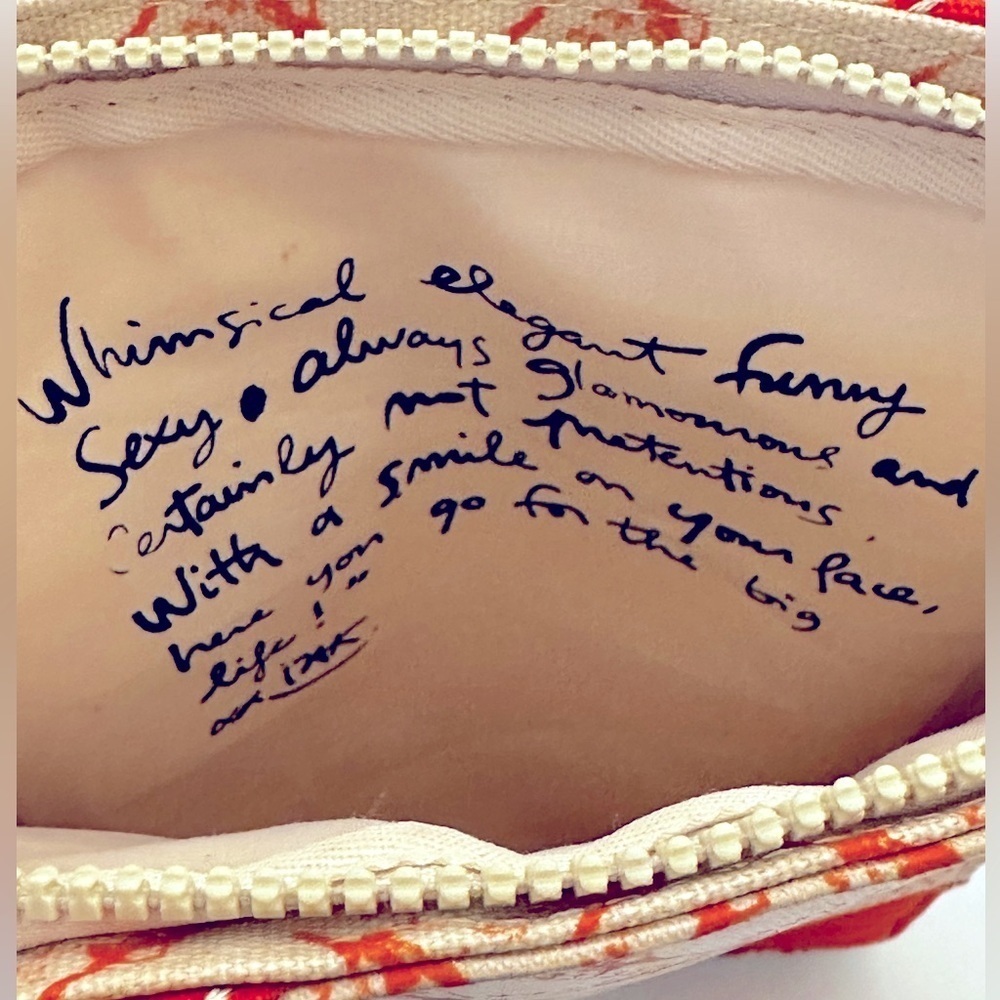 Whimsical elegant funny
Sexy • always glamourous and
certainly not pretentious.
With a smile on your face,
here you go for the big
life!"